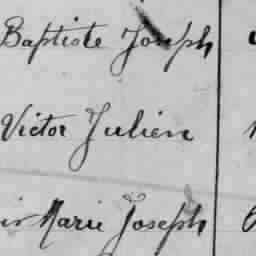 Baptiste Joseph
Victor Julien
Marie Joseph